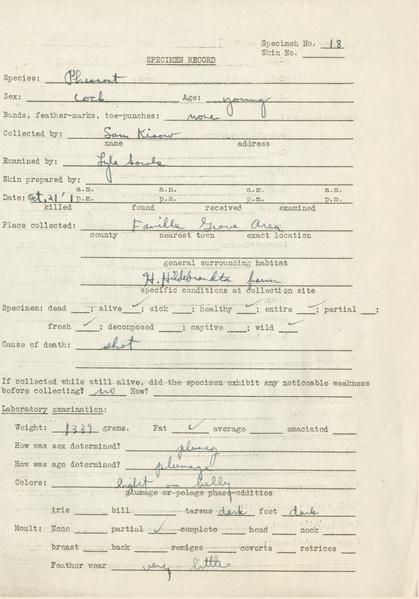 Specimen No. 18
Skin No.
SPECIMEN RECORD
Species: Pheasant
Sex: cock Age: young
Bands, feather-marks, toe-punches: none
Collected by: Sam Kisow
name address
Examined by: Lyle Sowls
Skin prepared by:
a.m. a.m. a.m. a.m.
Date: Oct. 31' p.m. p.m. p.m. p.m.
killed found received examined
Place collected: Faville Grove Area
county nearest town exact location
general surrounding habitat
H. Hildebrandts farm
specific conditions at collection site
Specimen: dead ; alive ✓ ; sick ; healthy ✓ ; entire ✓ ; partial ;
fresh ✓ ; decomposed ; captive ; wild ✓
Cause of death: shot
If collected while still alive, did the specimen exhibit any noticable weakness
before collecting? no How?
Laboratory examination:
Weight: 1339 grams. Fat ✓ average emaciated
How was sex determined? plumag
How was age determined? plumage
Colors: light on belly
plumage or pelage phase-oddities
iris bill tarsus dark foot dark
Moult: None partial ✓ complete head neck
breast back remiges coverts retrices
Feather wear very little